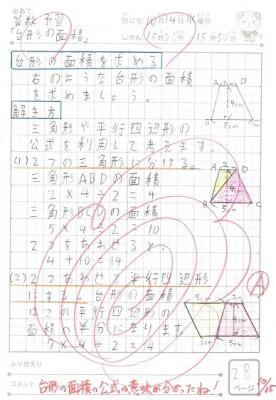 めあて
算数 予習
「台形の面積」
日にち 10月14日水曜日
じかん 15時00分〜15時50分
台形の面積を求める
右のような台形の面積
を求めましょう。
解き方
三角形や平行四辺形の
公式を利用して考えます。
(1) 2つの三角形に分ける。
三角形ABDの面積
2×4÷2=4
三角形BCDの面積
5×4÷2=10
2つをあわせると、
4+10=14
(2) 2つあわせて平行四辺形
にする。台形の面積
はこの平行四辺形の
面積の半分になります
7×4÷2=4
A D
5cm
A D
ふりかえり
28
ページ
コメント 台形の面積の公式の意味が分かったね!
10/15